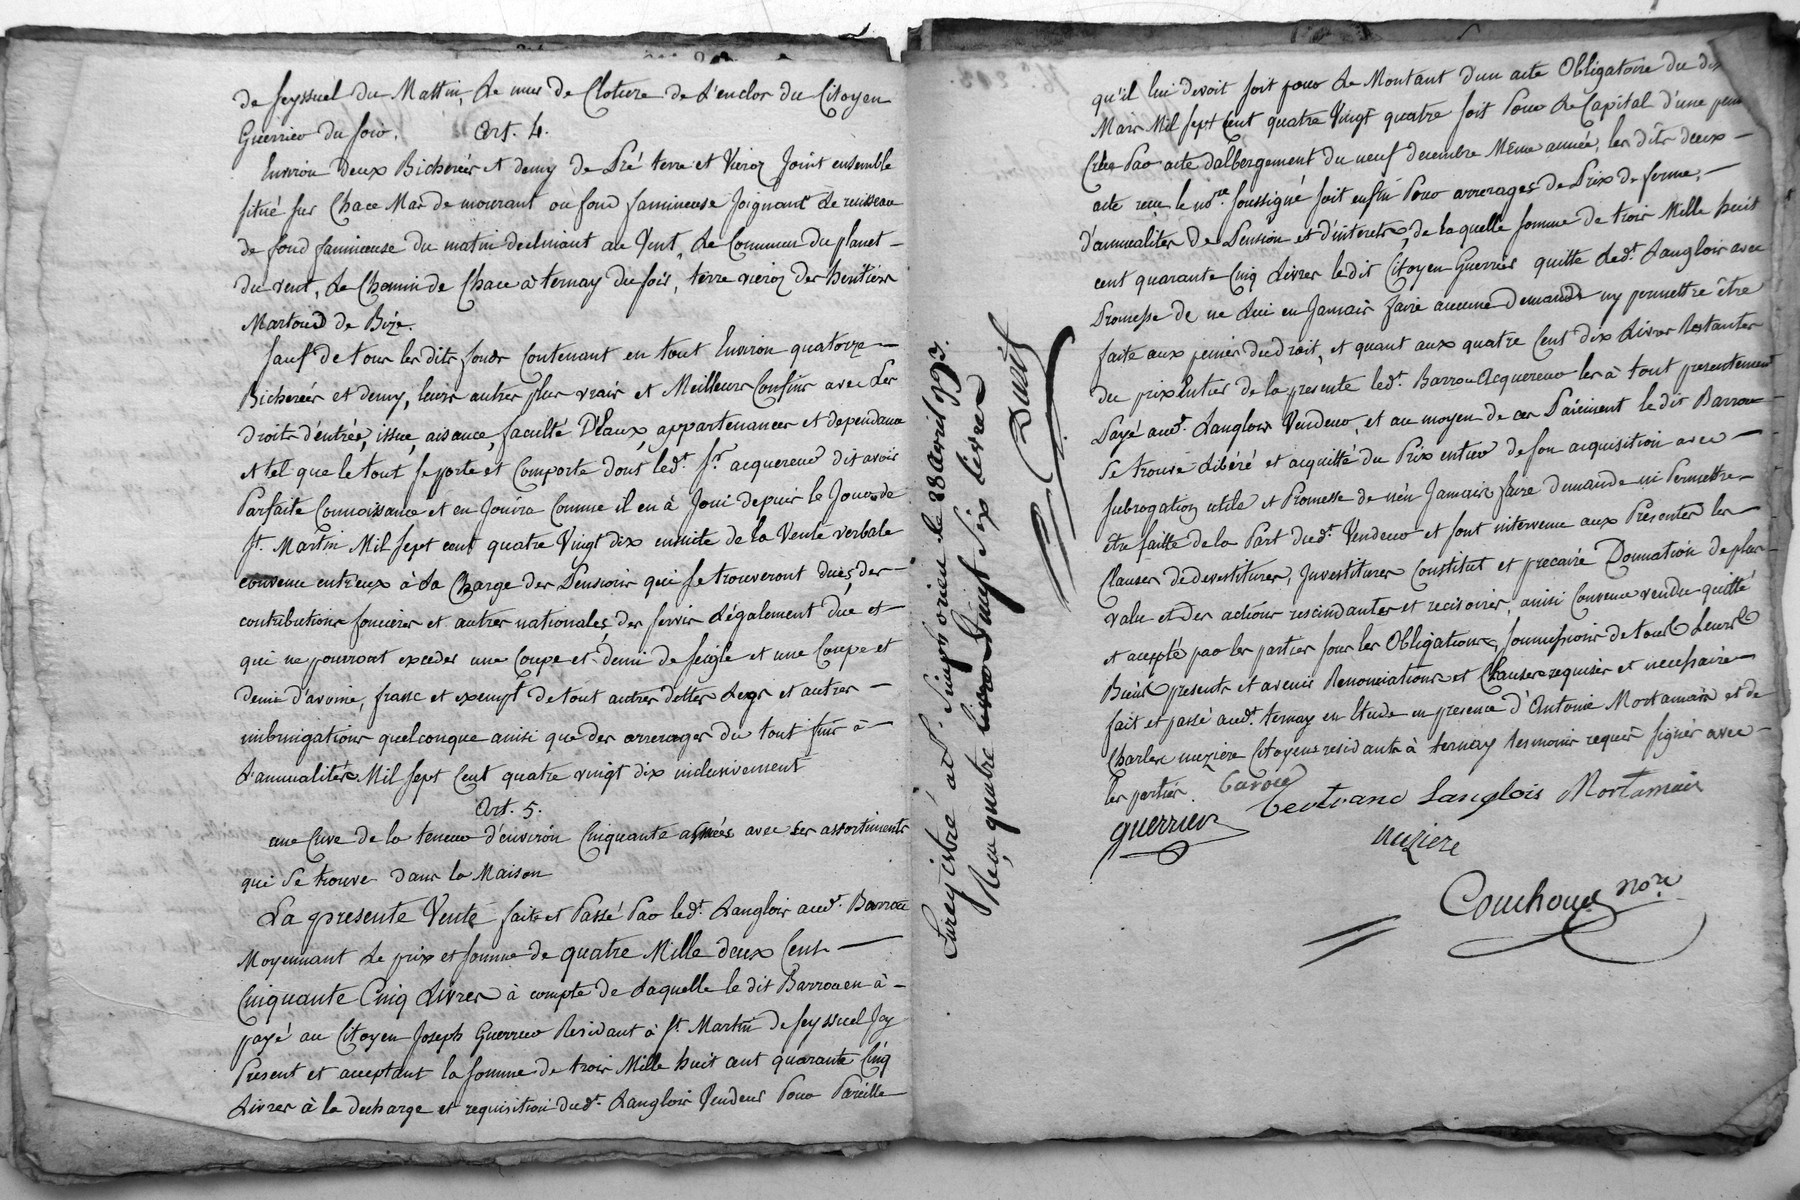 de seyssuel du Mattin, Le mur de Cloture de L'enclos du Citoyen
Guerrier du soir.
Art. 4.
Environ deux Bicherées et demy de Pré terre et Vieroz Joint ensemble
situé sur Chace Mas de mourant ou fond famineuse Joignant Le ruisseau
de fond famineuse du matin declinant au Vent, Le Commun du planet
du vent, Le Chemin de Chace à ternay du soir, terre vieroz des heritiers
Martoud de Bize.
Sauf de tous les dits fonds Contenant en tout Environ quatorze
Bicherées et demy, leurs autres plus vrais et Meilleurs Confins avec Les
droits d'entrée, issue, aisance, faculté D'eaux, appartenances et dependance
et tel que le tout se porte et Comporte dont led.t Sr. acquereur dit avoir
Parfaite Connoissance et en Jouira Comme il en à Joui depuis le Jour de
St. Martin Mil sept cent quatre Vingt dix ensuite de la Vente verbale
convenue entr'eux à La Charge des Pensions qui se trouveront dues, des
contributions foncieres et autres nationales, des servis Légalement due et
qui ne pourront exceder une Coupe et demi de seigle et une Coupe et
demi d'avoine, franc et exempt de tout autres dettes Legs et autres
imbrigations quelconque ainsi que des arrerages du tout fins à
L'annualités Mil sept Cent quatre vingt dix inclusivement
Art. 5.
une Cuve de la teneur d'environ Cinquante asnées avec ses assortiments
qui Se trouve dans la Maison
La presente Vente faite et Passé Par led.t Langlois aud.t Barrou
Moyennant Le prix et somme de quatre Mille deux Cent
Cinquante Cinq Livres à compte de Laquelle le dit Barrou en à
payé au Citoyen Joseph Guerrier Residant à St. Martin de seyssuel Icy
Présent et acceptant la somme de trois Mille huit cent quarante Cinq
Livres à la decharge et requisition dud.t Langlois Vendeur Pour Pareille
Enregistré à St. Simphorien le 28 avril 1793.
Reçu quatre livres Vingt Six livres
Duret
qu'il lui devoit soit pour Le Montant d'un acte Obligatoire du dix
Mars Mil sept Cent quatre Vingt quatre soit Pour Le Capital d'une
Créée Par acte d'albergement du neuf decembre Même année, les dits deux
acte reçu le no.re soussigné soit enfin Pour arrerages de Prix de ferme,
d'annualités de Pension et d'interets, de laquelle somme de trois Mille huit
cent quarante Cinq Livres le dit Citoyen Guerrier quitte Led.t Langlois avec
Promesse de ne Lui en Jamais faire aucune Demande ny permettre être
faite aux peines du droit, et quant aux quatre Cent dix Livres Restantes
du prix Entier de la presente led.t Barrou Acquereur les à tout presentement
Payé aud.t Langlois Vendeur, et au moyen de ces Paiement le dit Barrou
Se trouve Libéré et acquitté du Prix entier de son acquisition avec
subrogation utile et Promesse de n'en Jamais faire demande ni Permettre
être faitte de la Part dud.t Vendeur et sont intervenue aux Presentes les
Clauses de devestitures, Investitures Constitut et precaire Donnation de plus
value et des actions rescindantes et recisoires, ainsi Convenu vendu quitté
et accepté par les parties sous les Obligations, soumissions de tous Leurs
Biens presents et avenir Renonciations et Clauses requises et necessaire
fait et passé aud.t ternay en Etude en presence d'Antoine Mortamais et de
Charles auziere Citoyens residants à ternay temoins requis signés avec
les parties.
Barou
Bertrand Langlois Mortamais
guerrier
auziere
Couchoud no.re